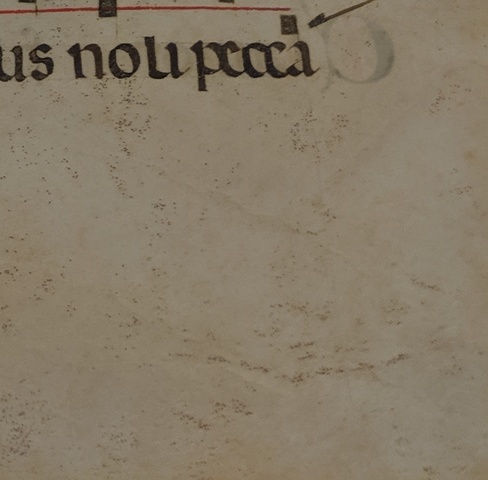 us noli pecca